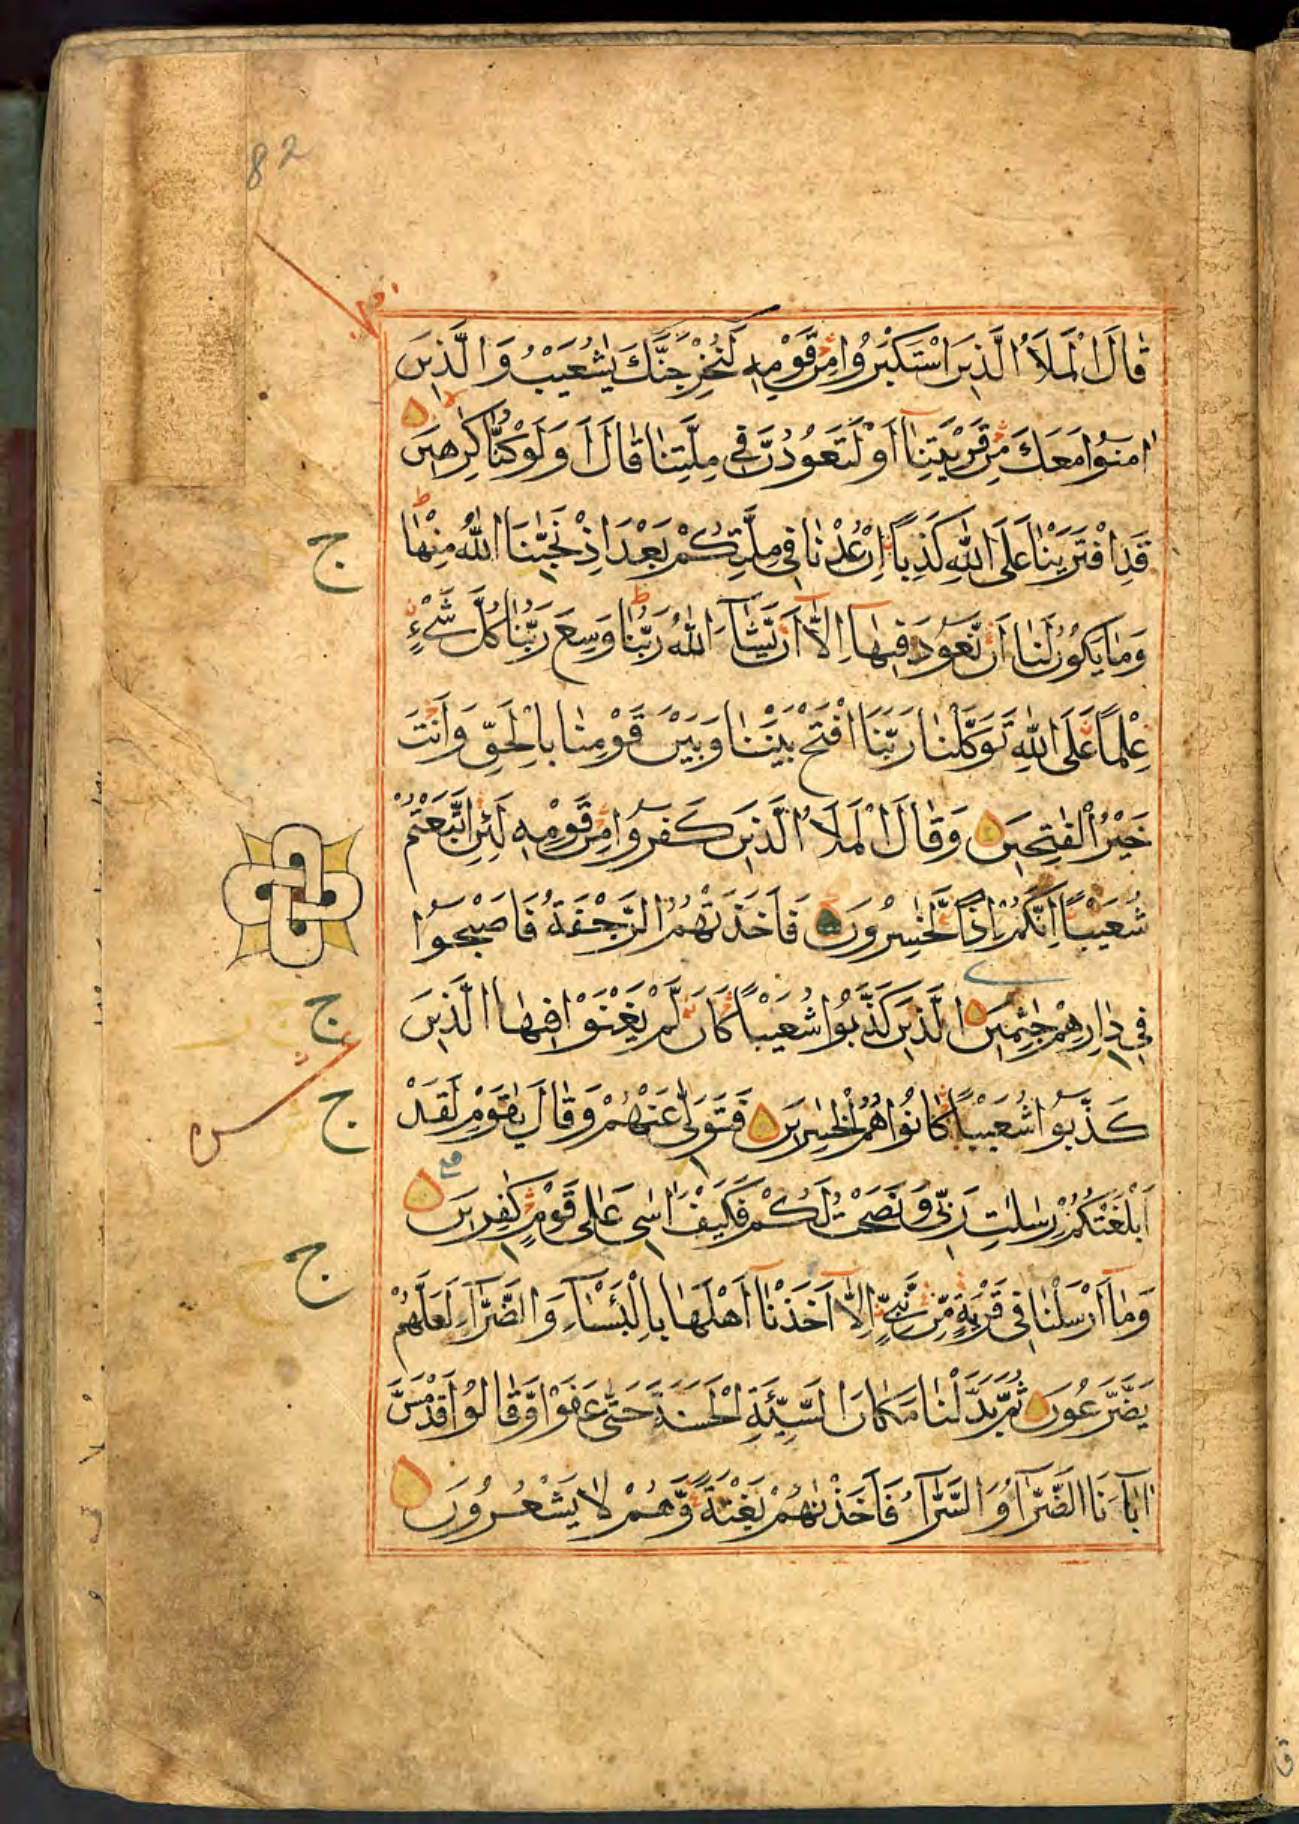 82
قَالَ الْمَلَاُ الَّذِيْنَ اسْتَكْبَرُوا مِنْ قَوْمِهٖ لَنُخْرِجَنَّكَ يٰشُعَيْبُ وَالَّذِيْنَ
اٰمَنُوْا مَعَكَ مِنْ قَرْيَتِنَا اَوْ لَتَعُوْدُنَّ فِي مِلَّتِنَا قَالَ اَوَلَوْ كُنَّا كٰرِهِيْنَ
قَدِ افْتَرَيْنَا عَلَى اللّٰهِ كَذِبًا اِنْ عُدْنَا فِي مِلَّتِكُمْ بَعْدَ اِذْ نَجّٰنَا اللّٰهُ مِنْهَا ط
ج
وَمَا يَكُوْنُ لَنَا اَنْ نَّعُوْدَ فِيْهَا اِلَّا اَنْ يَّشَآءَ اللّٰهُ رَبُّنَا ط وَسِعَ رَبُّنَا كُلَّ شَيْءٍ
عِلْمًا عَلَى اللّٰهِ تَوَكَّلْنَا رَبَّنَا افْتَحْ بَيْنَنَا وَبَيْنَ قَوْمِنَا بِالْحَقِّ وَاَنْتَ
خَيْرُ الْفٰتِحِيْنَ وَقَالَ الْمَلَاُ الَّذِيْنَ كَفَرُوا مِنْ قَوْمِهٖ لَئِنِ اتَّبَعْتُمْ
شُعَيْبًا اِنَّكُمْ اِذًا لَّخٰسِرُوْنَ فَاَخَذَتْهُمُ الرَّجْفَةُ فَاَصْبَحُوْا
فِي دَارِهِمْ جٰثِمِيْنَ الَّذِيْنَ كَذَّبُوْا شُعَيْبًا كَاَنْ لَّمْ يَغْنَوْا فِيْهَا الَّذِيْنَ
ج
كَذَّبُوْا شُعَيْبًا كَانُوْا هُمُ الْخٰسِرِيْنَ فَتَوَلّٰى عَنْهُمْ وَقَالَ يٰقَوْمِ لَقَدْ
ج
اَبْلَغْتُكُمْ رِسٰلٰتِ رَبِّي وَنَصَحْتُ لَكُمْ فَكَيْفَ اٰسٰى عَلٰى قَوْمٍ كٰفِرِيْنَ
ج
وَمَا اَرْسَلْنَا فِي قَرْيَةٍ مِّنْ نَّبِيٍّ اِلَّا اَخَذْنَا اَهْلَهَا بِالْبَأْسَآءِ وَالضَّرَّآءِ لَعَلَّهُمْ
يَضَّرَّعُوْنَ ثُمَّ بَدَّلْنَا مَكَانَ السَّيِّئَةِ الْحَسَنَةَ حَتّٰى عَفَوْا وَّقَالُوْا قَدْ مَسَّ
اٰبَآءَنَا الضَّرَّآءُ وَالسَّرَّآءُ فَاَخَذْنٰهُمْ بَغْتَةً وَّهُمْ لَا يَشْعُرُوْنَ